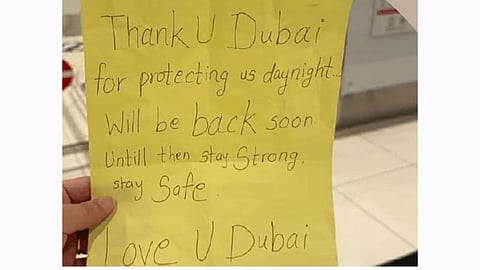 Thank U Dubai
for protecting us daynight...
Will be back soon
Untill then stay Strong.
stay Safe.
Love U Dubai